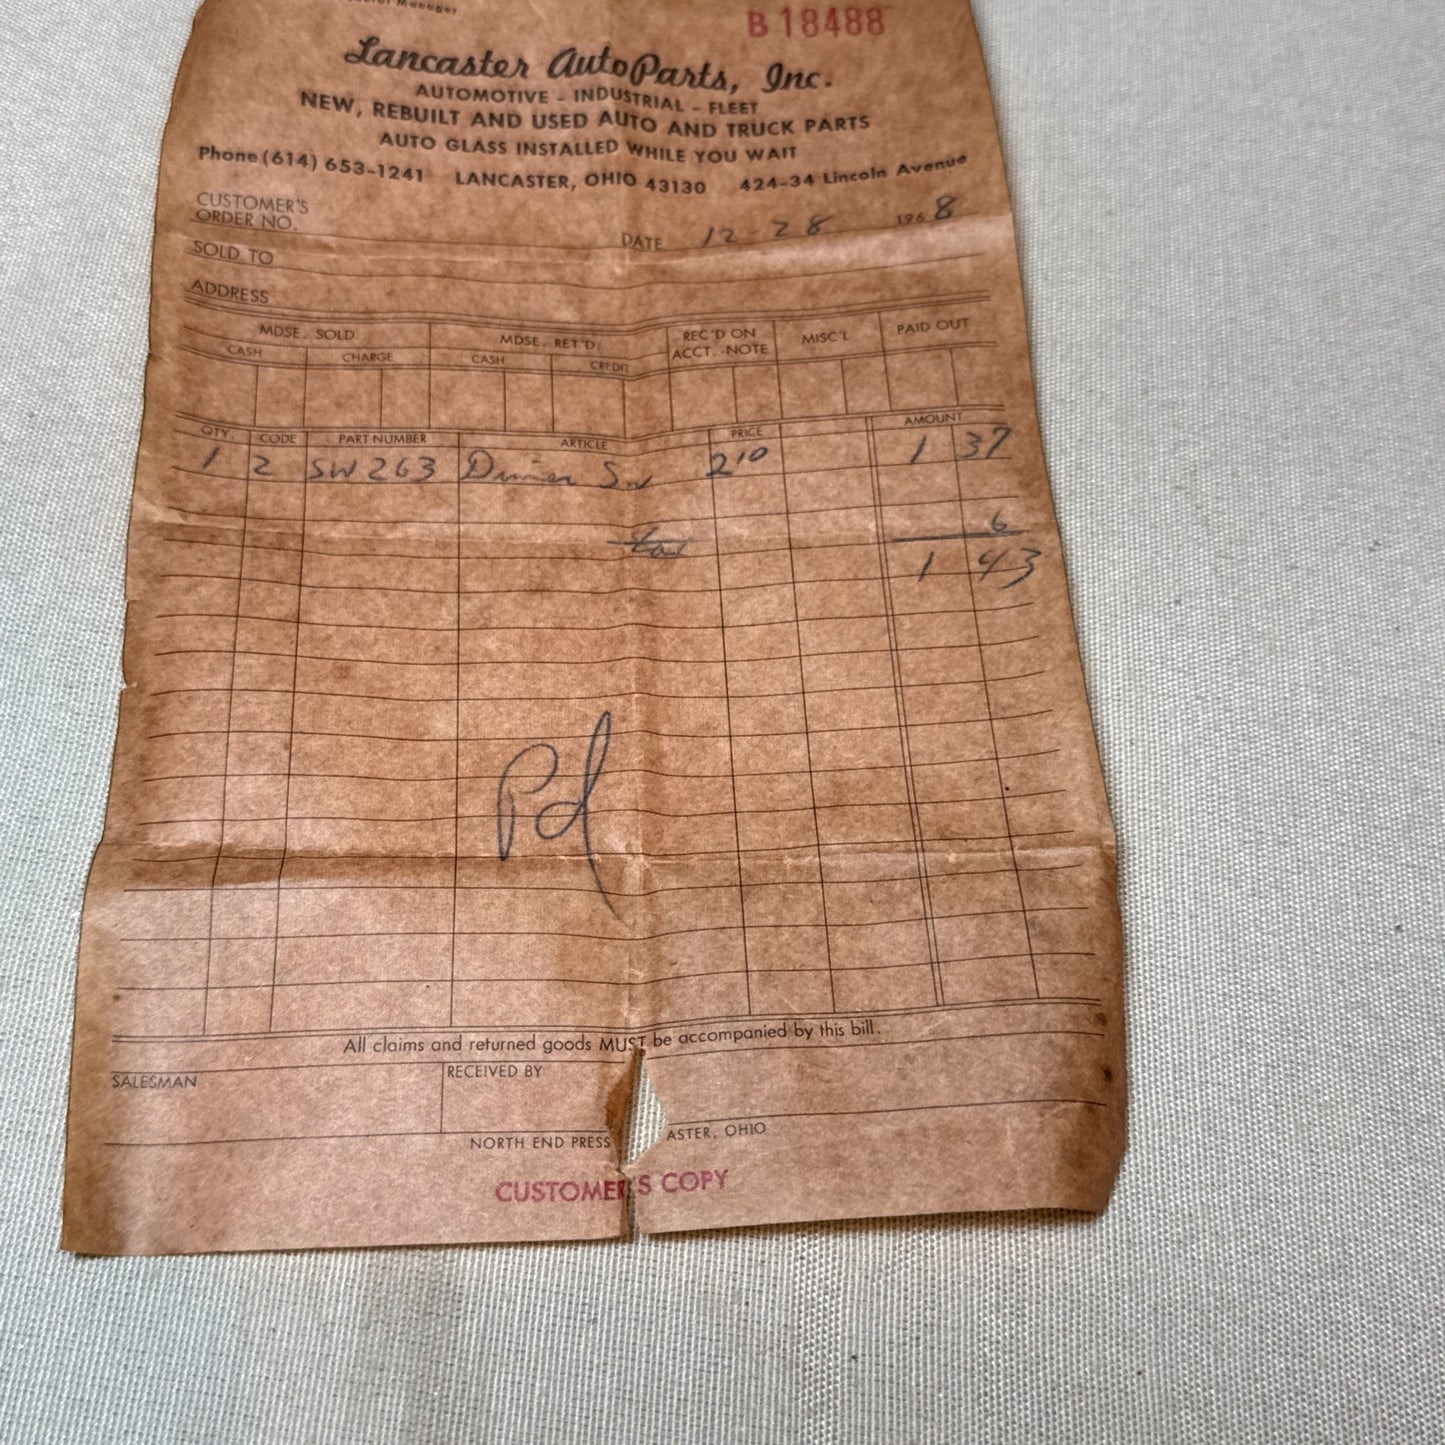 Manager
B 18488
Lancaster Auto Parts, Inc.
AUTOMOTIVE - INDUSTRIAL - FLEET
NEW, REBUILT AND USED AUTO AND TRUCK PARTS
AUTO GLASS INSTALLED WHILE YOU WAIT
Phone (614) 653-1241 LANCASTER, OHIO 43130 424-34 Lincoln Avenue
CUSTOMER'S
ORDER NO. DATE 12-28 1968
SOLD TO
ADDRESS
MDSE. SOLD MDSE. RET'D. REC'D ON ACCT.-NOTE MISC'L PAID OUT
CASH CHARGE CASH CREDIT
QTY. CODE PART NUMBER ARTICLE PRICE AMOUNT
1 2 SW 263 Dimmer Sw 2 10 1 37
tax 6
1 43
Pd
All claims and returned goods MUST be accompanied by this bill.
SALESMAN RECEIVED BY
NORTH END PRESS ASTER, OHIO
CUSTOMER'S COPY